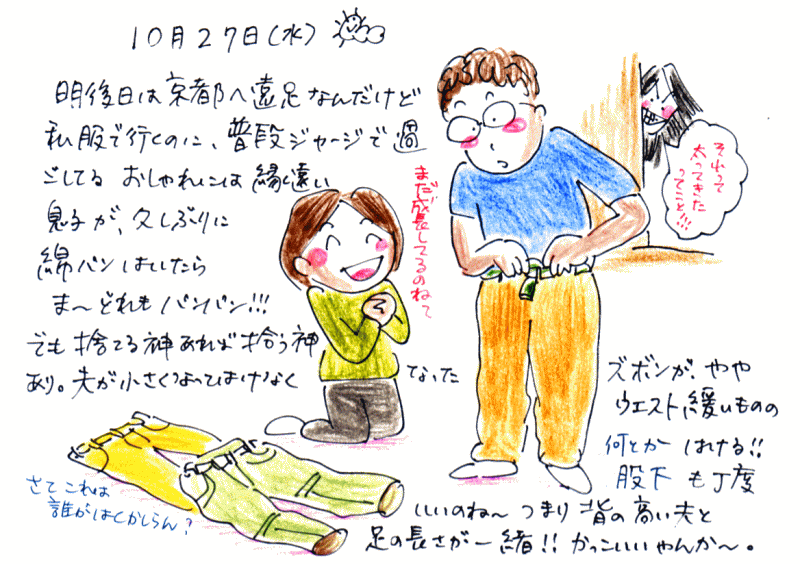 10月27日(水)
明後日は京都へ遠足なんだけど
私服で行くのに、普段ジャージで過
ごしてる おしゃれには縁遠い
息子が、久しぶりに
綿パンはいたら
ま〜どれもパンパン!!!
でも捨てる神あれば拾う神
あり。夫が小さくなってはけなく
なった
ズボンが、やや
ウエスト緩いものの
何とかはける!!
股下も丁度
いいのね〜つまり背の高い夫と
足の長さが一緒!!かっこいいやんか〜。
まだ成長してるのねて
それって
太ってきた
ってこと!!!
さてこれは
誰がはくかしらん?